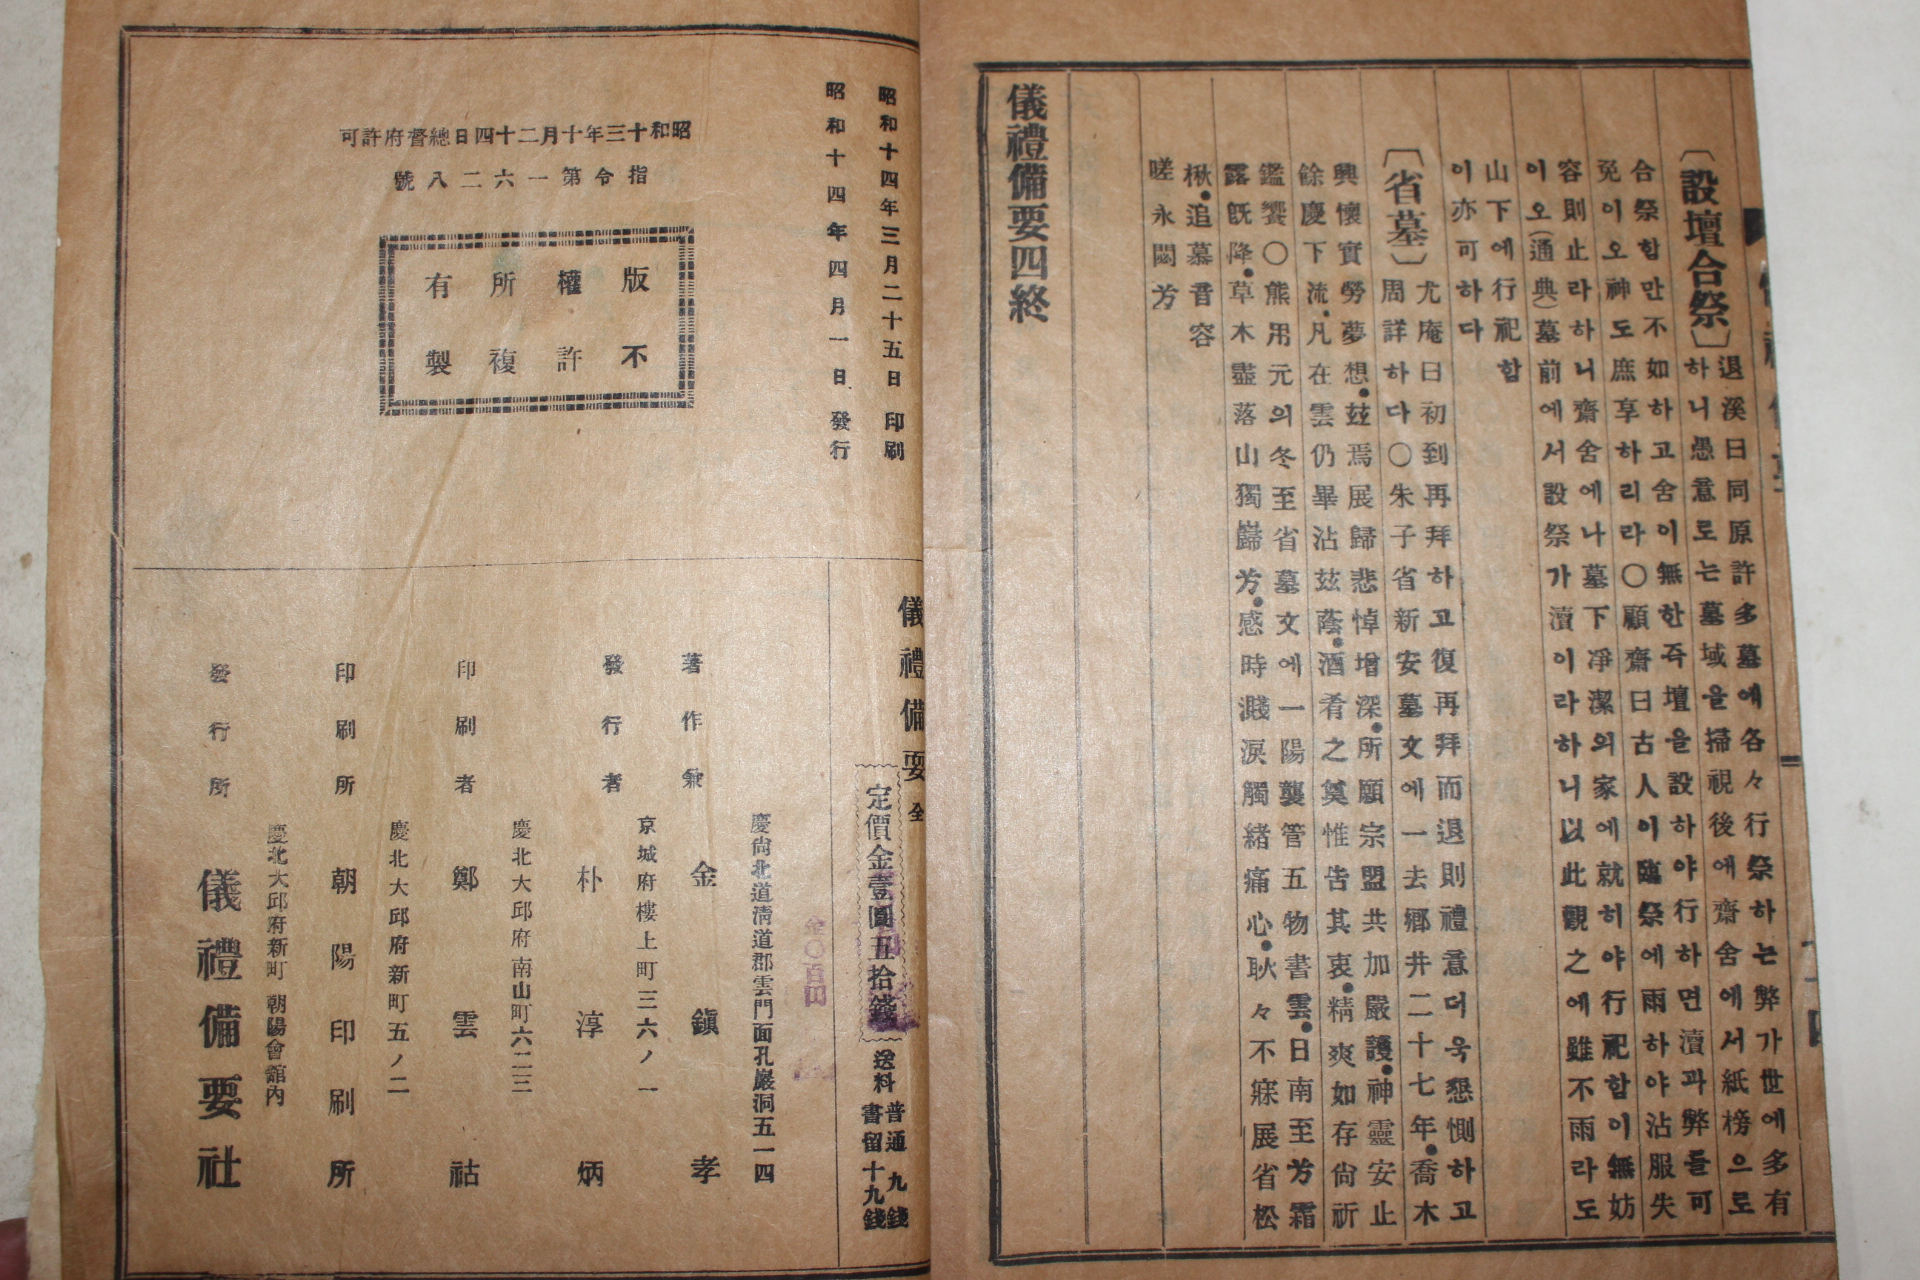 〔設壇合祭〕
退溪曰同原許多墓에各々行祭하는弊가世에多有
하니愚意로는墓域을掃視後에齋舍에서紙榜으로
合祭함만不如하고舍이無한즉壇을設하야行하면瀆과弊를可
免이오神도庶享하리라〇顧齋曰古人이臨祭에雨하야沾服失
容則止라하니齋舍에나墓下凈潔의家에就히야行祀함이無妨
이오(通典)墓前에서設祭가瀆이라하니以此觀之에雖不雨라도
山下에行祀함
이亦可하다
〔省墓〕
尤庵曰初到再拜하고復再拜而退則禮意더욱懇惻하고
周詳하다〇朱子省新安墓文에一去鄉井二十七年•喬木
興懷實勞夢想•玆焉展歸悲悼增深•所願宗盟共加嚴護•神靈安止
餘慶下流•凡在雲仍畢沾玆蔭•酒肴之奠惟告其衷•精爽如存尙祈
鑑饗〇熊用元의冬至省墓文에一陽襲管五物書雲•日南至芳霜
露旣降•草木盡落山獨巋芳•感時濺淚觸緒痛心•耿々不寐展省松
楸•追慕音容
嗟永閟芳
儀禮備要四終
昭和十四年三月二十五日 印刷
昭和十四年四月一日 發行
昭和十三年十月二十四日總督府許可
指令第一六二八號
版權所有
不許複製
儀禮備要 全
定價金壹圓五拾錢
送料 普通 九錢
書留十九錢
金〇百円
慶尙北道淸道郡雲門面孔巖洞五一四
著作兼 金鎭孝
京城府樓上町三六ノ一
發行者 朴淳炳
慶北大邱府南山町六二三
印刷者 鄭雲祜
慶北大邱府新町五ノ二
印刷所 朝陽印刷所
慶北大邱府新町 朝陽會舘內
發行所 儀禮備要社